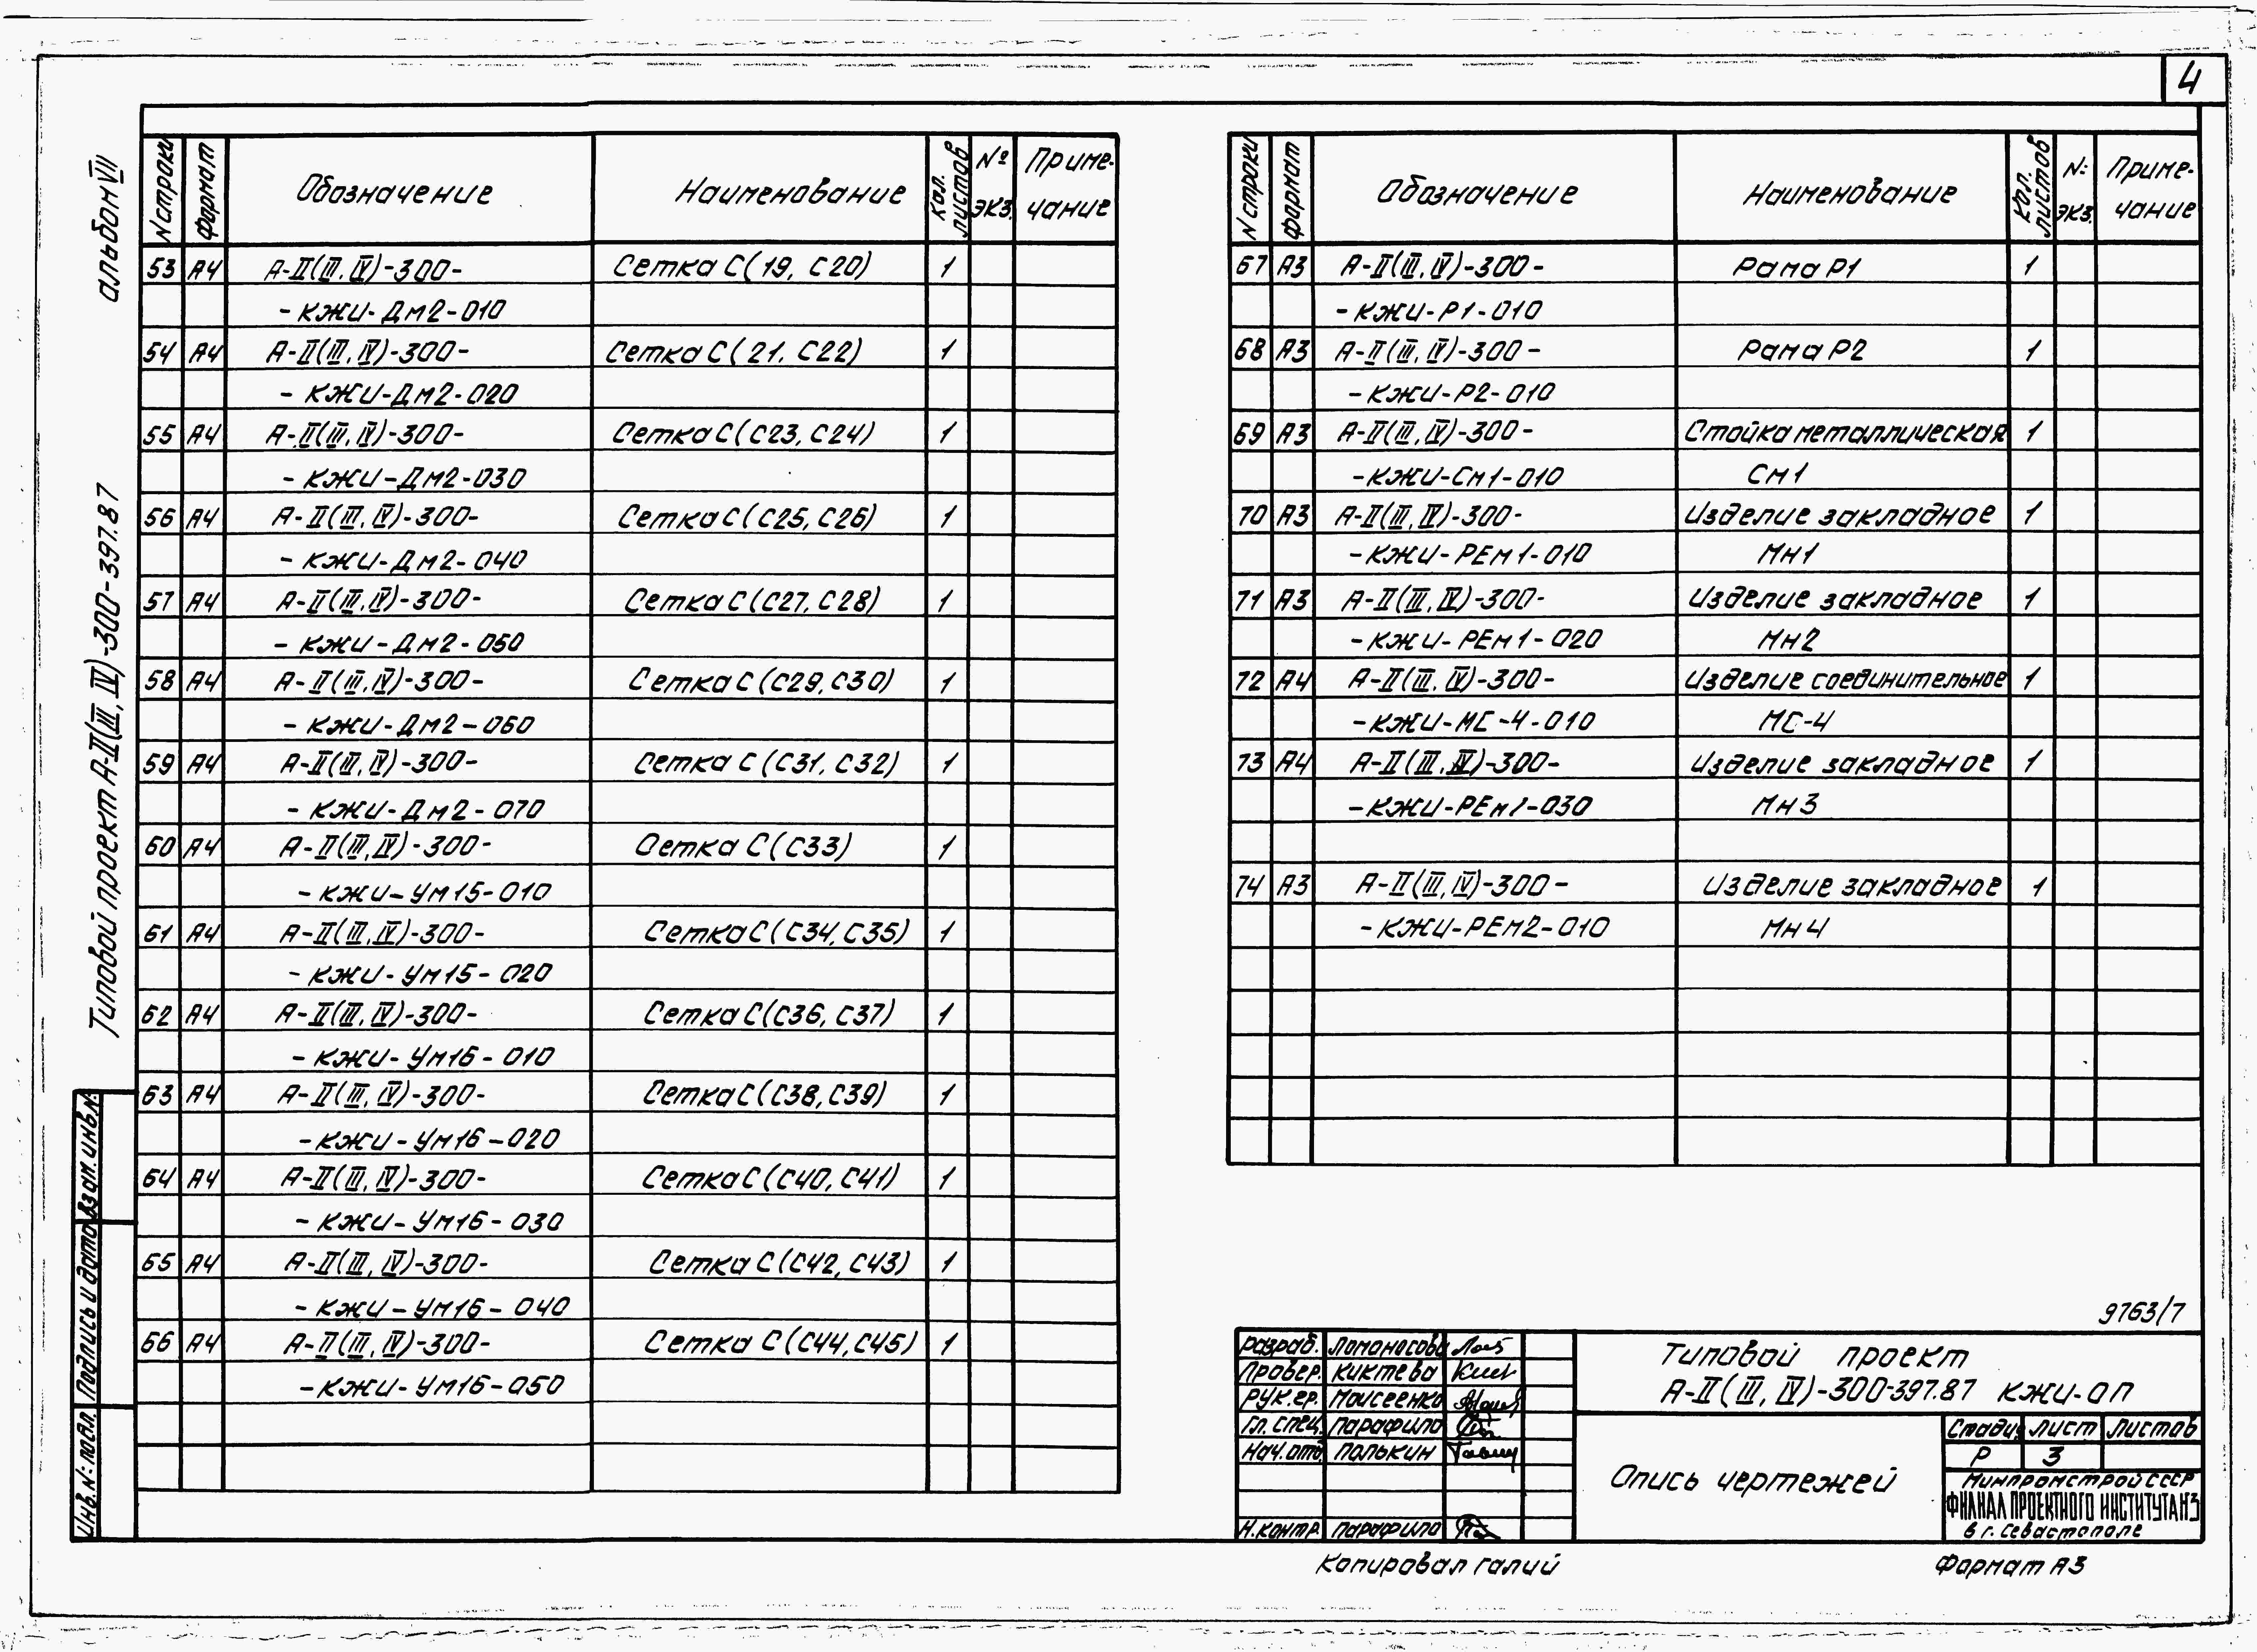 4
альбом VII
Типовой проект А-II(III, IV)-300-397.87
Взам. инв. №
Подпись и дата
Инв. №: подл.
N строки Формат Обозначение Наименование Кол. листов № экз. Приме-
чание
53 А4 А-II(III, IV)-300- Сетка С(19, С20) 1
-КЖИ-Дм2-010
54 А4 А-II(III, IV)-300- Сетка С(21, С22) 1
-КЖИ-Дм2-020
55 А4 А-II(III, IV)-300- Сетка С(С23, С24) 1
-КЖИ-Дм2-030
56 А4 А-II(III, IV)-300- Сетка С(С25, С26) 1
-КЖИ-Дм2-040
57 А4 А-II(III, IV)-300- Сетка С(С27, С28) 1
-КЖИ-Дм2-050
58 А4 А-II(III, IV)-300- Сетка С(С29, С30) 1
-КЖИ-Дм2-060
59 А4 А-II(III, IV)-300- Сетка С(С31, С32) 1
-КЖИ-Дм2-070
60 А4 А-II(III, IV)-300- Сетка С(С33) 1
-КЖИ-Ум15-010
61 А4 А-II(III, IV)-300- Сетка С(С34, С35) 1
-КЖИ-Ум15-020
62 А4 А-II(III, IV)-300- Сетка С(С36, С37) 1
-КЖИ-Ум16-010
63 А4 А-II(III, IV)-300- Сетка С(С38, С39) 1
-КЖИ-Ум16-020
64 А4 А-II(III, IV)-300- Сетка С(С40, С41) 1
-КЖИ-Ум16-030
65 А4 А-II(III, IV)-300- Сетка С(С42, С43) 1
-КЖИ-Ум16-040
66 А4 А-II(III, IV)-300- Сетка С(С44, С45) 1
-КЖИ-Ум16-050
N строки Формат Обозначение Наименование Кол. листов №: экз. Приме-
чание
67 А3 А-II(III, IV)-300- Рама Р1 1
-КЖИ-Р1-010
68 А3 А-II(III, IV)-300- Рама Р2 1
-КЖИ-Р2-010
69 А3 А-II(III, IV)-300- Стойка металлическая 1
-КЖИ-См1-010 См1
70 А3 А-II(III, IV)-300- Изделие закладное 1
-КЖИ-РЕм1-010 Мн1
71 А3 А-II(III, IV)-300- Изделие закладное 1
-КЖИ-РЕм1-020 Мн2
72 А4 А-II(III, IV)-300- Изделие соединительное 1
-КЖИ-МС-4-010 МС-4
73 А4 А-II(III, IV)-300- Изделие закладное 1
-КЖИ-РЕм1-030 Мн3
74 А3 А-II(III, IV)-300- Изделие закладное 1
-КЖИ-РЕм2-010 Мн4
9763/7
Разраб. Ломоносова
Провер. Киктева
Рук.гр. Моисеенко
Гл. спец. Парафило
Нач.отд. Палькин
Н.контр. Парафило
Типовой проект
А-II(III, IV)-300-397.87 КЖИ-ОП
Опись чертежей
Стадия Лист Листов
Р 3
Минпромстрой СССР
ФИЛИАЛ ПРОЕКТНОГО ИНСТИТУТА №3
в г. Севастополе
Копировал Галий
Формат А3